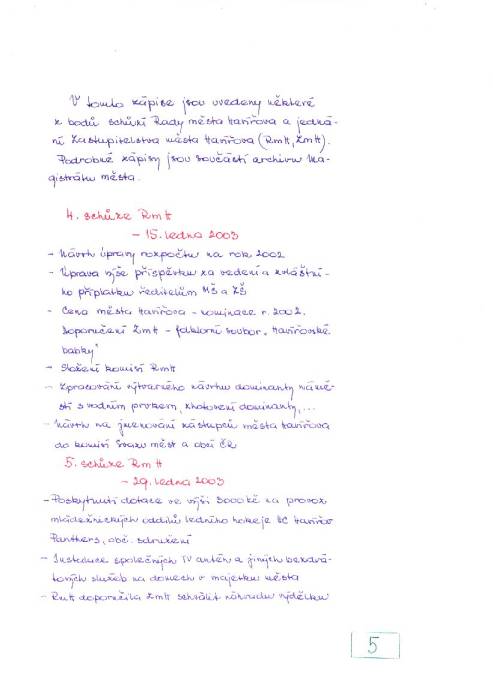 V tomto zápise jsou uvedeny některé
z bodů schůzí Rady města Havířova a jedná-
ní Zastupitelstva města Havířova (RmH, ZmH).
Podrobné zápisy jsou součástí archivu Ma-
gistrátu města.
4. schůze RmH
- 15. ledna 2003
- Návrh úpravy rozpočtu na rok 2002
- Úprava výše příspěvku za vedení a zvláštní-
ho příplatku ředitelům MŠ a ZŠ
- Cena města Havířova - nominace r. 2002.
Doporučení ZmH - folklorní soubor "Havířovské
babky"
- Složení komisí RmH
- Zpracování výtvarného návrhu dominanty náměs-
tí s vodním prvkem, zhotovení dominanty,...
- Návrh na jmenování zástupců města Havířova
do komisí Svazu měst a obcí ČR
5. schůze RmH
- 29. ledna 2003
- Poskytnutí dotace ve výši 3000 kč na provoz
mládežnických oddílů ledního hokeje HC Havířov
Panthers, obč. sdružení
- Instalace společných TV antén a jiných bezdrá-
tových služeb na domech v majetku města
- RmH doporučila ZmH schválit náhradu výdělku
5